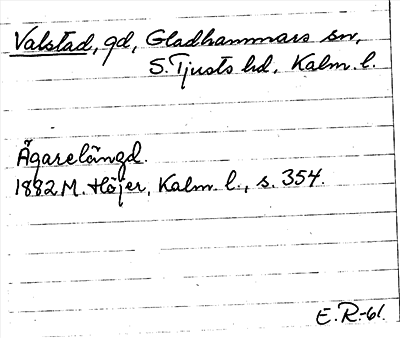 Valstad, gd, Gladhammars sn,
S. Tjusts hd, Kalm. l.
Ägarelängd.
1882 M. Höjer, Kalm. l., s. 354.
E.R.-61.